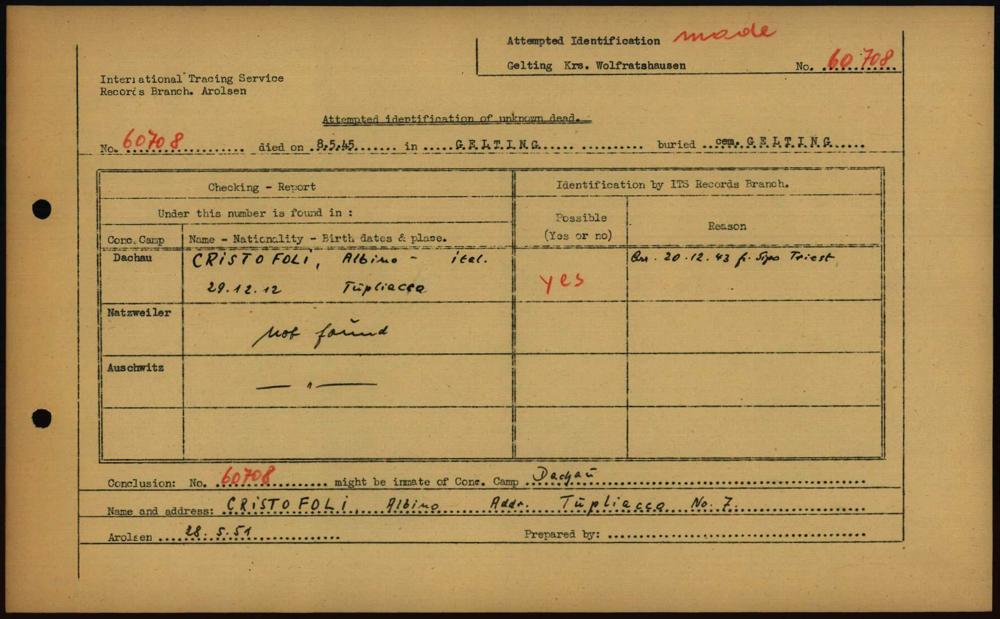 Attempted Identification made
Gelting Krs. Wolfratshausen No. 60 708
International Tracing Service
Records Branch. Arolsen
Attempted identification of unknown dead.
No. 60708 died on 8.5.45 in GELTING buried cem. GELTING
Checking - Report Identification by ITS Records Branch.
Under this number is found in :
Possible
(Yes or no) Reason
Conc. Camp Name - Nationality - Birth dates & place.
Dachau CRISTOFOLI, Albino - ital. 20.12.43 Sipo Triest
29.12.12 Tupliacco yes
Natzweiler
not found
Auschwitz
— " —
Conclusion: No. 60708 might be inmate of Conc. Camp Dachau
Name and address: CRISTOFOLI, Albino Addr. Tupliacco No. 7.
Arolsen 28.5.51 Prepared by: